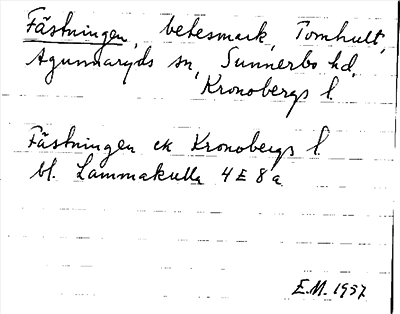 Fästningen, betesmark, Tomhult,
Agunnaryds sn, Sunnerbo hd,
Kronobergs l.
Fästningen ek Kronobergs l.
bl. Lammakulla 4E8a
E.M. 1957